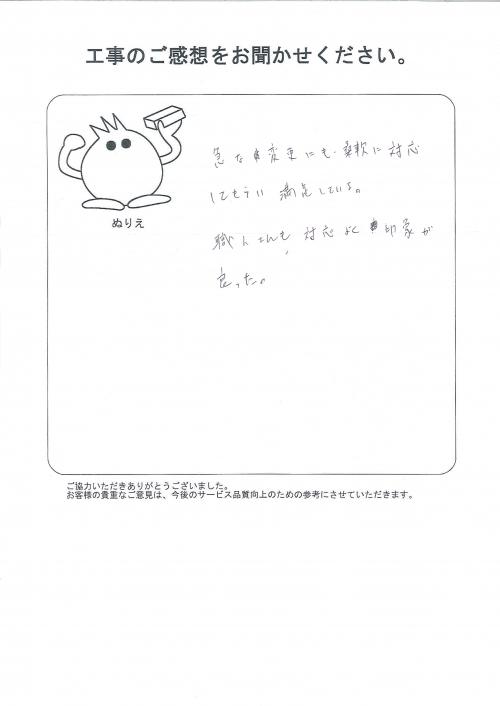 工事のご感想をお聞かせください。
急な変更にも柔軟に対応
してもらい満足している。
職人さんも、対応よく印象が
良った。
ぬりえ
ご協力いただきありがとうございました。
お客様の貴重なご意見は、今後のサービス品質向上のための参考にさせていただきます。